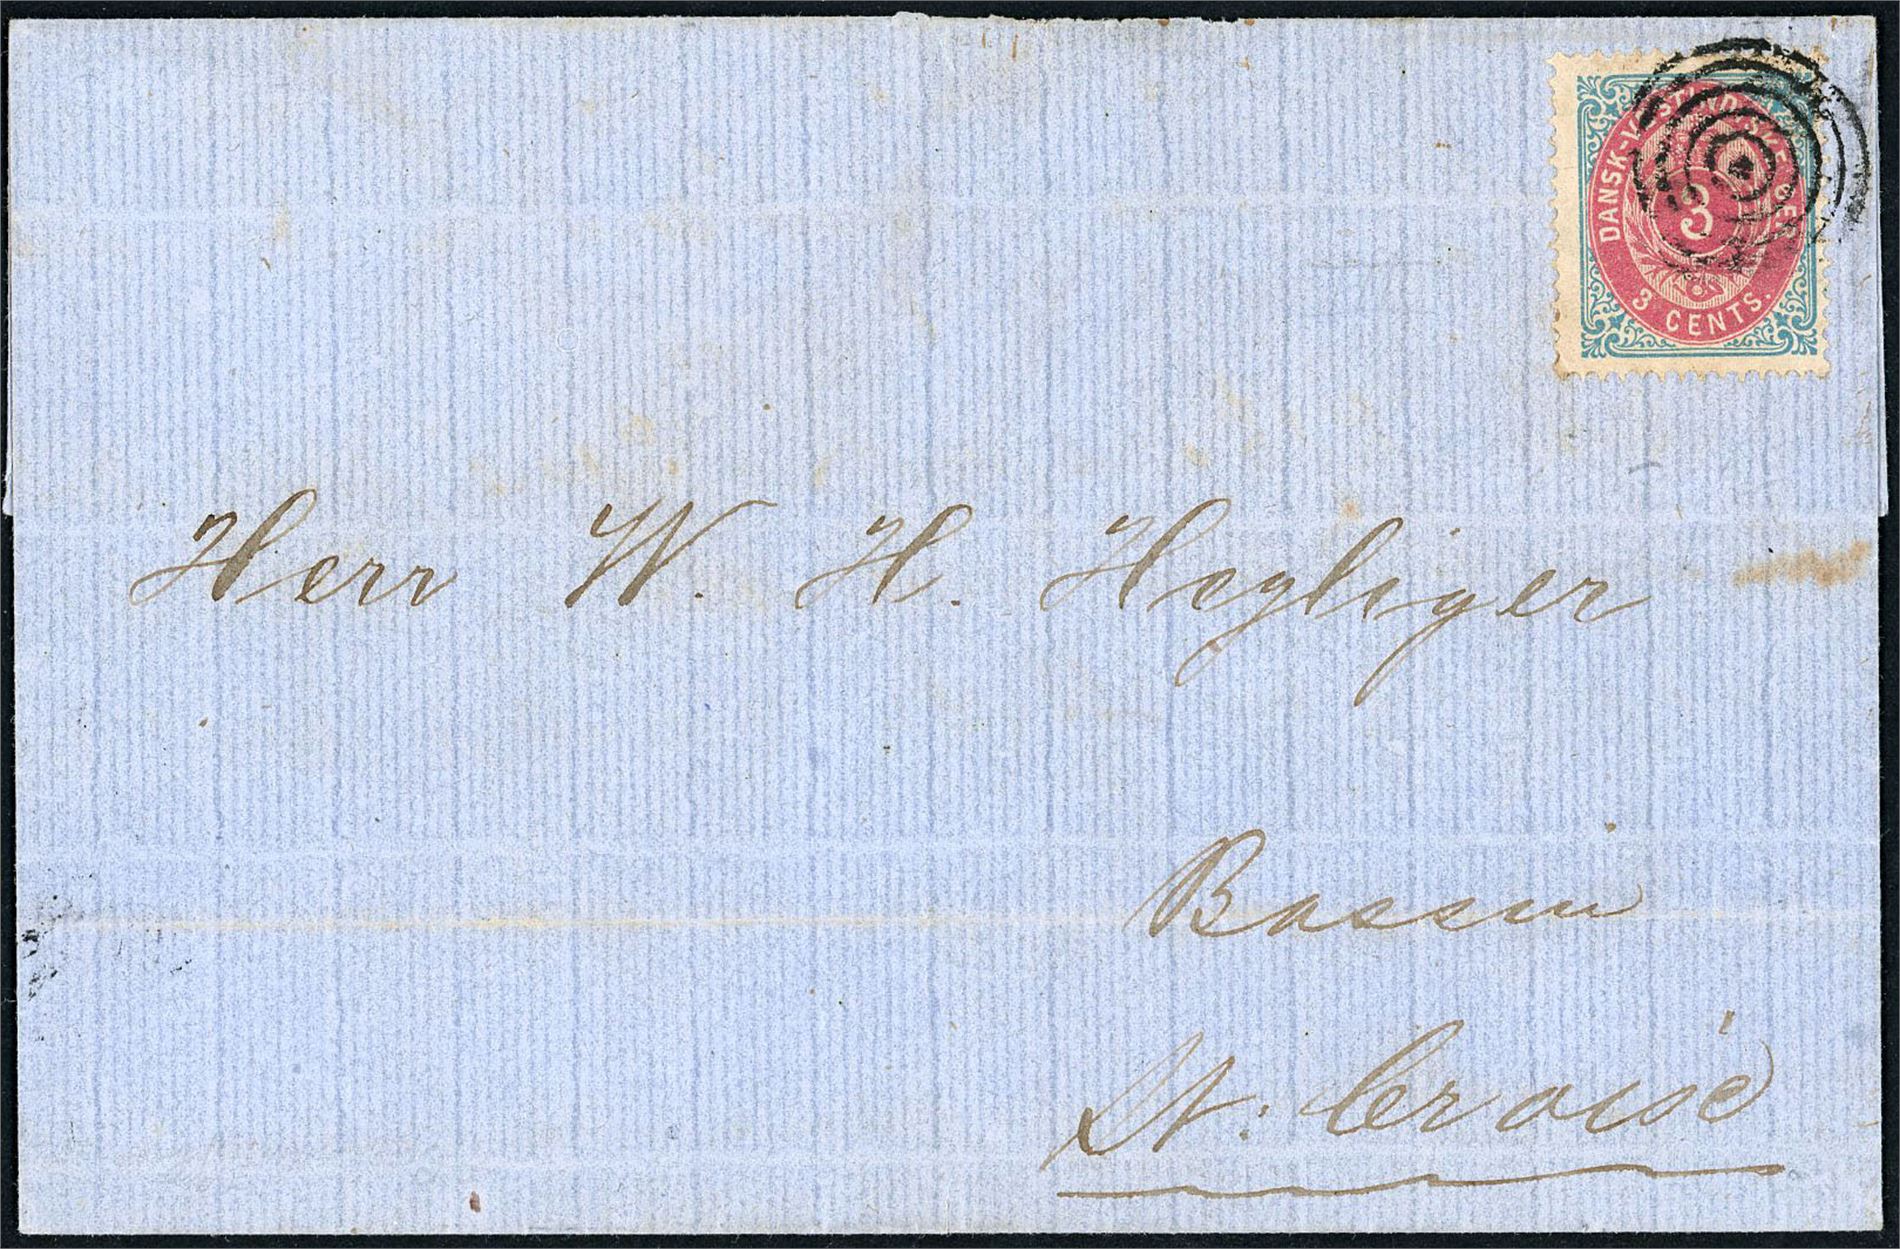 DANSK-VESTINDISKE ØER
3
3 CENTS.
Herr W. H. Heyliger
Bassin
St. Croise